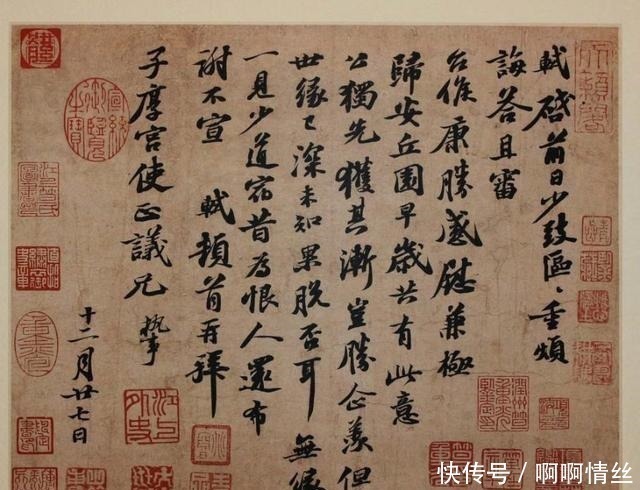 軾啓前日少致區〻重煩
誨答且審
台候康勝感慰兼極
歸安丘園早歲共有此意
公獨先獲其漸豈勝企羨但
世緣已深未知果脫否耳 無緣
一見少道宿昔為恨人還布
謝不宣 軾頓首再拜
子厚宮使正議兄 執事
十二月廿七日
快传号／啊啊情丝